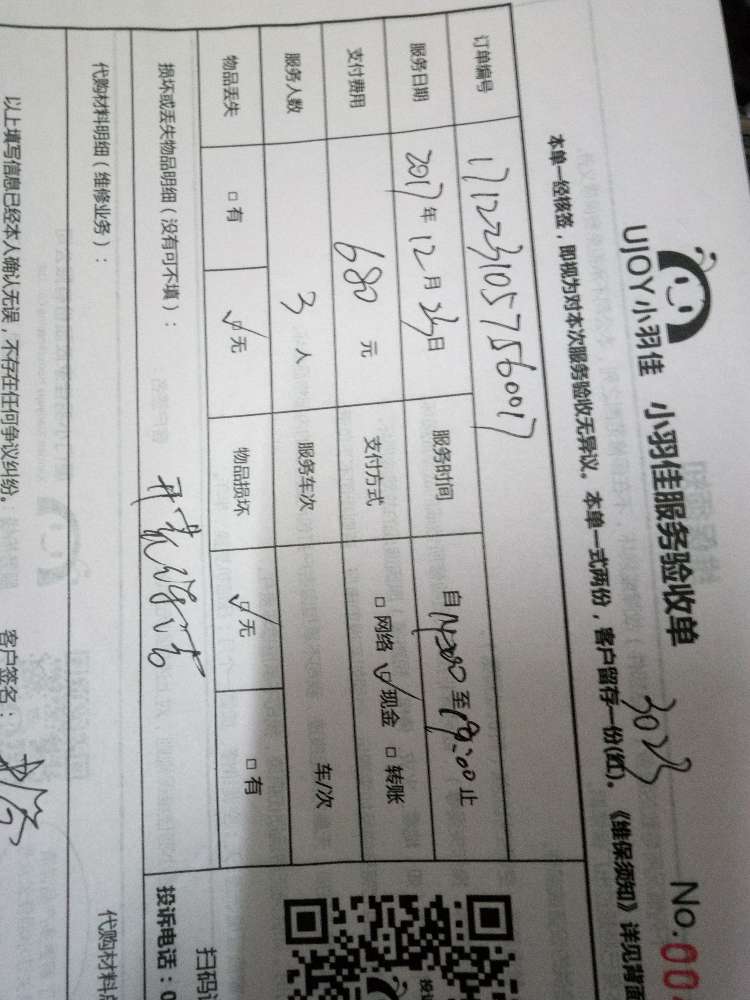 UJOY小羽佳 小羽佳服务验收单
3023
No.00
本单一经核签，即视为对本次服务验收无异议。本单一式两份，客户留存一份(红)。《维保须知》详见背面
订单编号 171223105756001
服务日期 2017年12月23日 服务时间 自 至19:00止
支付费用 680元 支付方式 □网络 ☑现金 □转账
服务人数 3人 服务车次 车/次
物品丢失 □有 ☑无 物品损坏 ☑无 □有
损坏或丢失物品明细（没有可不填）：
开荒保洁
代购材料明细（维修业务）：
代购材料
以上填写信息已经本人确认无误，不存在任何争议纠纷。 客户签名：
扫码
投诉电话：0